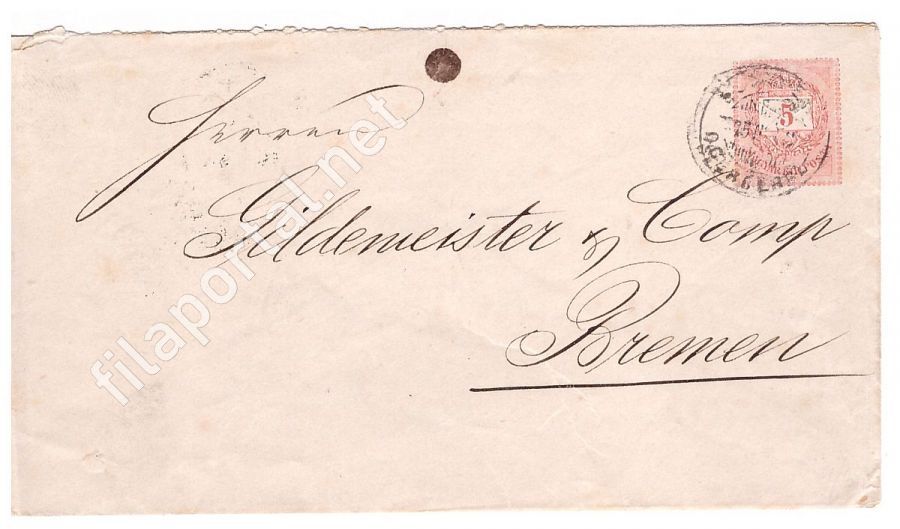 Herren
Gildemeister & Comp
Bremen
5
filaportal.net